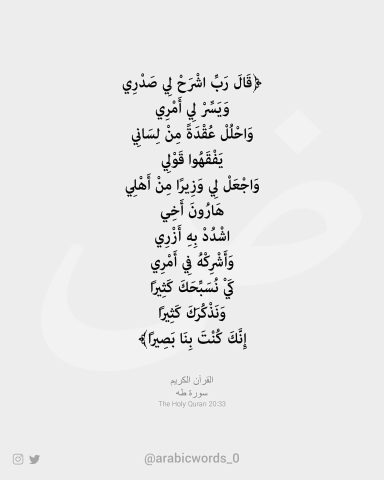 ﴿قَالَ رَبِّ اشْرَحْ لِي صَدْرِي
وَيَسِّرْ لِي أَمْرِي
وَاحْلُلْ عُقْدَةً مِنْ لِسَانِي
يَفْقَهُوا قَوْلِي
وَاجْعَلْ لِي وَزِيرًا مِنْ أَهْلِي
هَارُونَ أَخِي
اشْدُدْ بِهِ أَزْرِي
وَأَشْرِكْهُ فِي أَمْرِي
كَيْ نُسَبِّحَكَ كَثِيرًا
وَنَذْكُرَكَ كَثِيرًا
إِنَّكَ كُنْتَ بِنَا بَصِيرًا﴾
القرآن الكريم
سورة طه
The Holy Quran 20:33
@arabicwords_0
ض